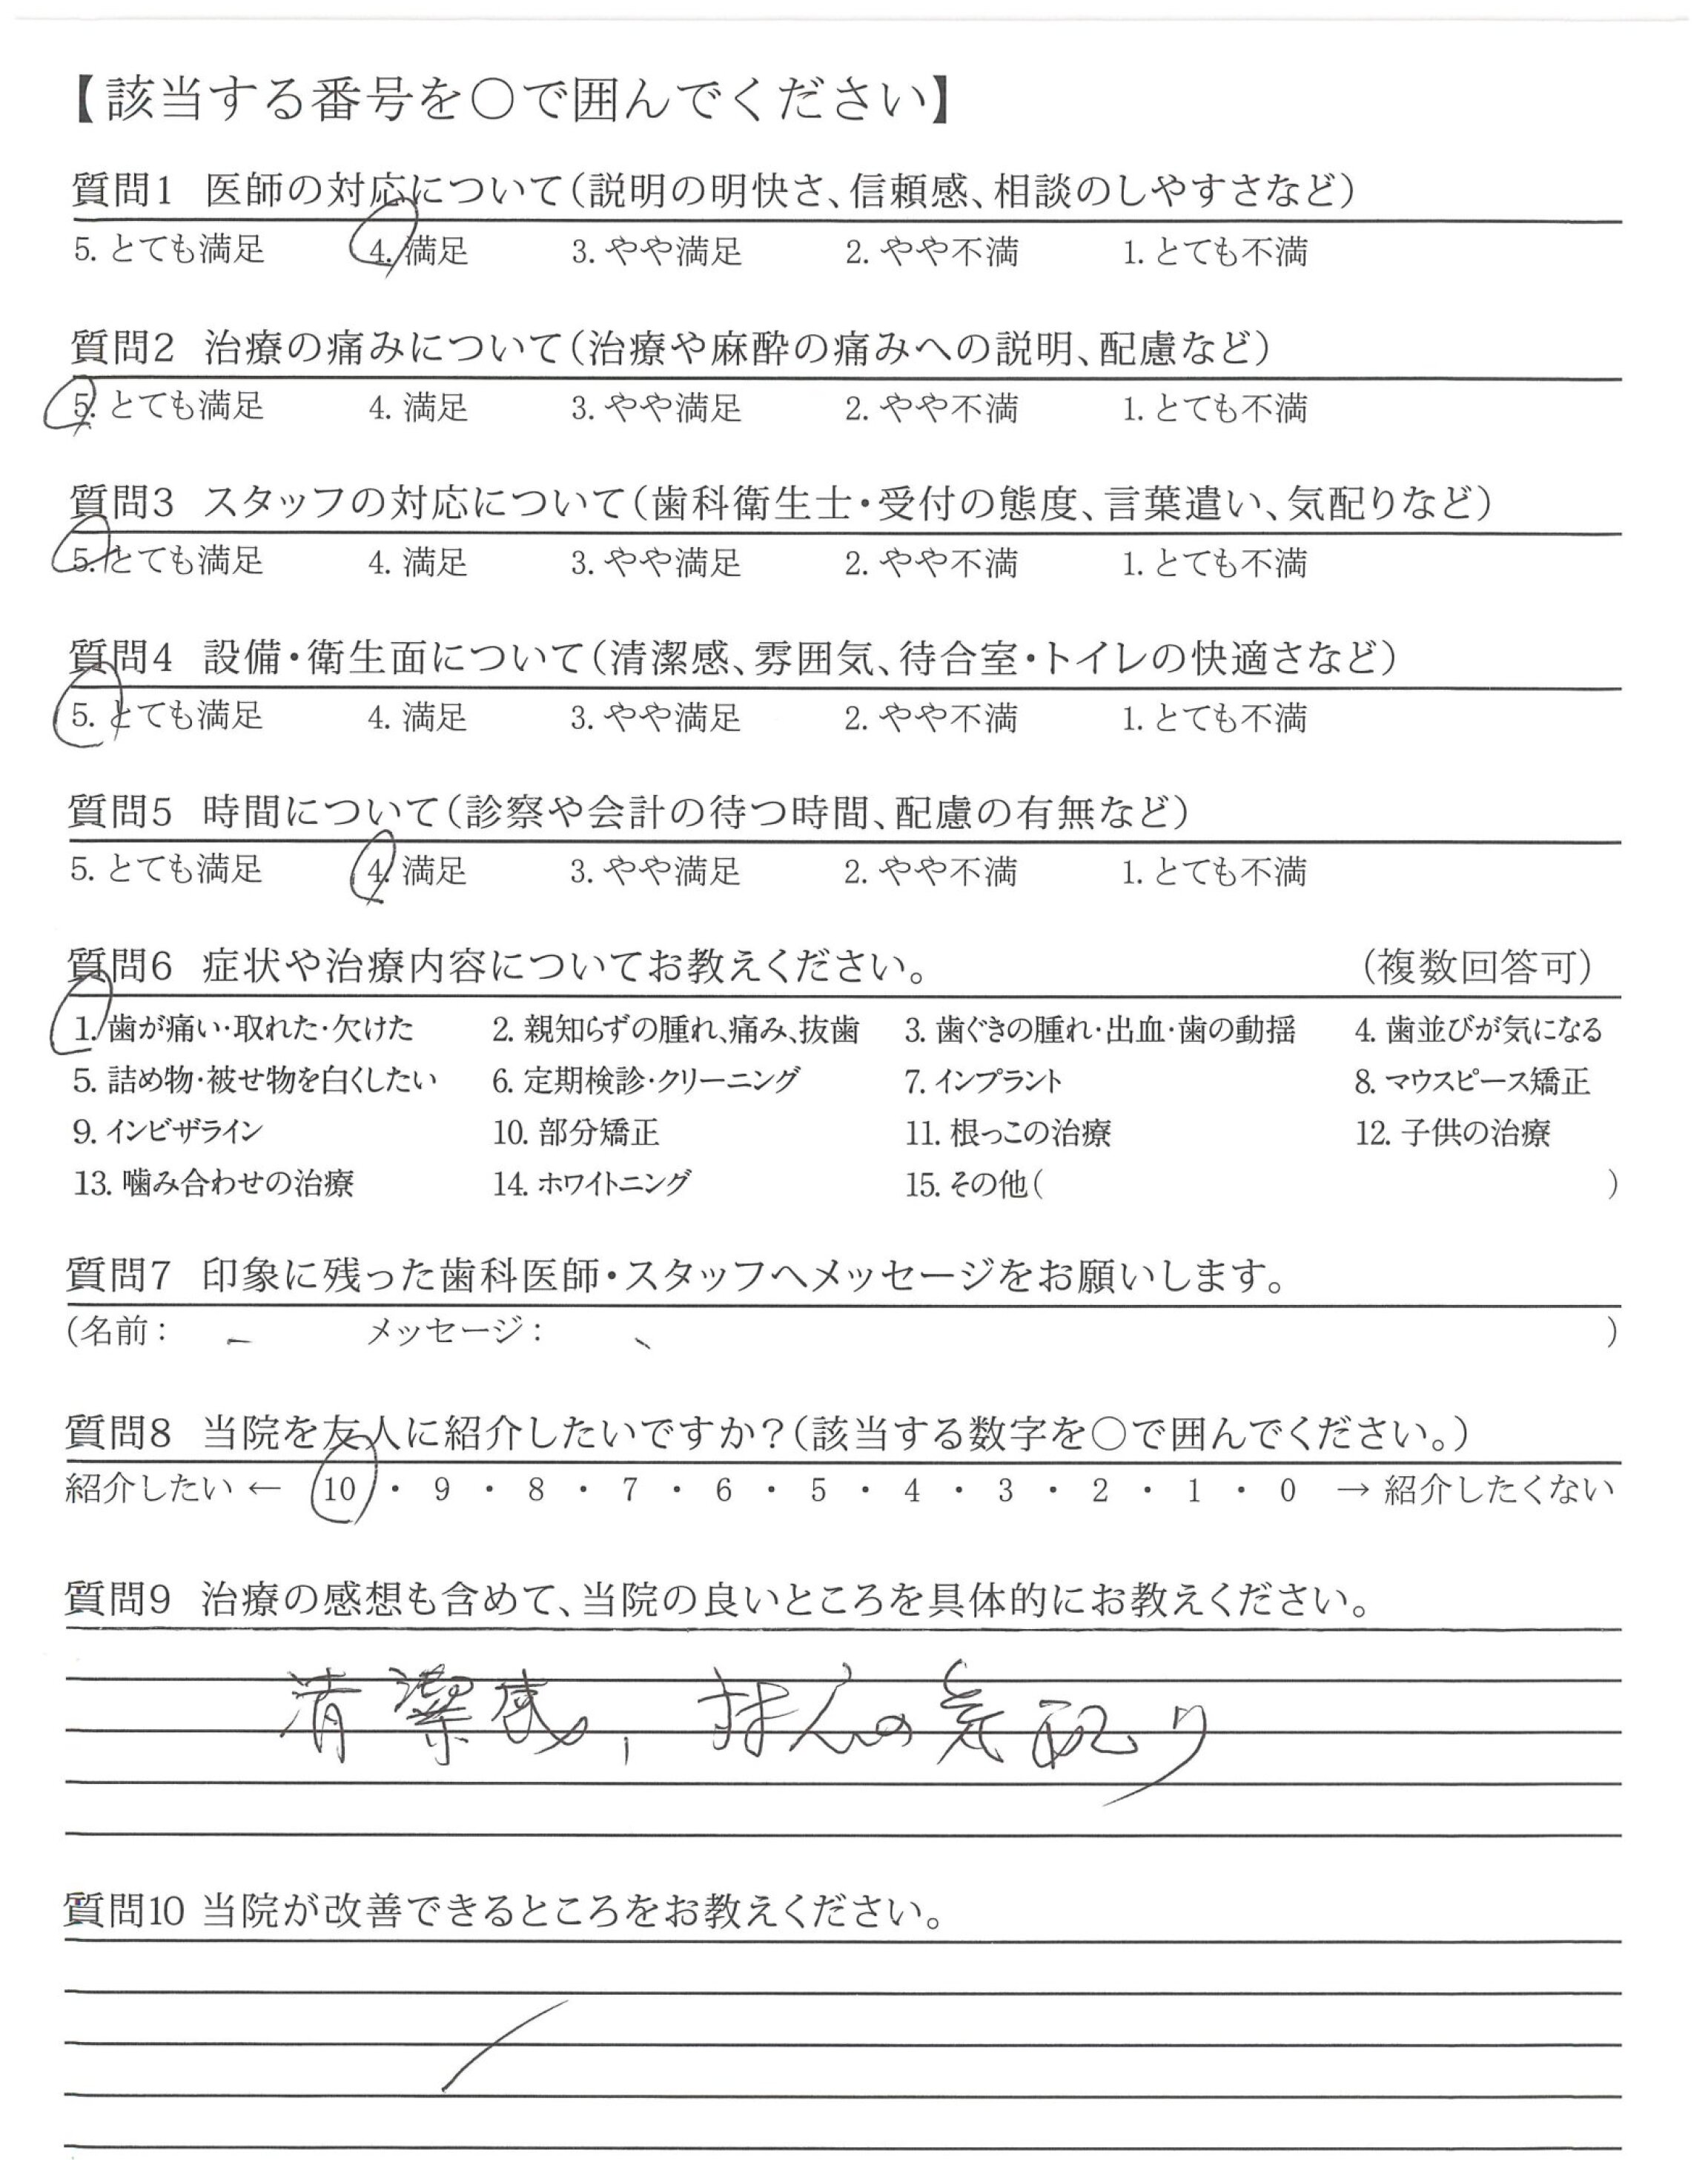 【該当する番号を〇で囲んでください】
質問1 医師の対応について(説明の明快さ、信頼感、相談のしやすさなど)
5. とても満足 4. 満足 3. やや満足 2. やや不満 1. とても不満
質問2 治療の痛みについて(治療や麻酔の痛みへの説明、配慮など)
5. とても満足 4. 満足 3. やや満足 2. やや不満 1. とても不満
質問3 スタッフの対応について(歯科衛生士・受付の態度、言葉遣い、気配りなど)
5. とても満足 4. 満足 3. やや満足 2. やや不満 1. とても不満
質問4 設備・衛生面について(清潔感、雰囲気、待合室・トイレの快適さなど)
5. とても満足 4. 満足 3. やや満足 2. やや不満 1. とても不満
質問5 時間について(診察や会計の待つ時間、配慮の有無など)
5. とても満足 4. 満足 3. やや満足 2. やや不満 1. とても不満
質問6 症状や治療内容についてお教えください。 (複数回答可)
1. 歯が痛い・取れた・欠けた 2. 親知らずの腫れ、痛み、抜歯 3. 歯ぐきの腫れ・出血・歯の動揺 4. 歯並びが気になる
5. 詰め物・被せ物を白くしたい 6. 定期検診・クリーニング 7. インプラント 8. マウスピース矯正
9. インビザライン 10. 部分矯正 11. 根っこの治療 12. 子供の治療
13. 噛み合わせの治療 14. ホワイトニング 15. その他( )
質問7 印象に残った歯科医師・スタッフへメッセージをお願いします。
(名前: メッセージ: )
質問8 当院を友人に紹介したいですか?(該当する数字を〇で囲んでください。)
紹介したい ← 10 ・ 9 ・ 8 ・ 7 ・ 6 ・ 5 ・ 4 ・ 3 ・ 2 ・ 1 ・ 0 → 紹介したくない
質問9 治療の感想も含めて、当院の良いところを具体的にお教えください。
清潔感, の気配り
質問10 当院が改善できるところをお教えください。